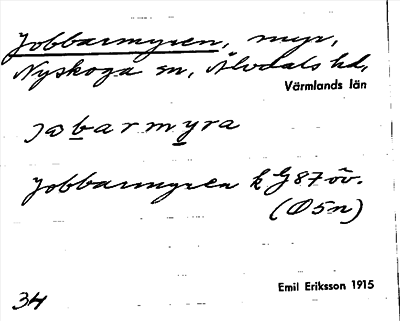 Jobbarmyren, myr,
Nyskoga sn, Älvdals hd,
Värmlands län
jɷbarmyra
Jobbarmyren k G 87 öv.
(Ö 5 n)
Emil Eriksson 1915
34